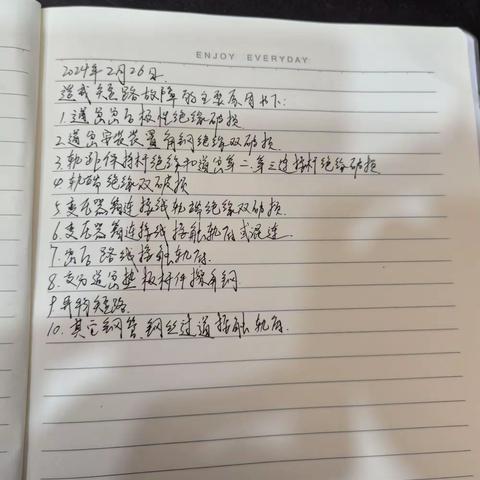 ENJOY EVERYDAY
2024年2月26日
造成短路故障的主要原因如下:
1.道岔岔后极性绝缘破损
2.道岔安装装置角钢绝缘双破损
3.轨距保持杆绝缘和道岔第二、第三连接杆绝缘破损
4.轨端绝缘双破损
5.变压器箱连接线轨端绝缘双破损.
6.变压器箱连接线接触轨底或混连.
7.岔后跳线接触轨底.
8.道岔垫板杆件擦角钢.
9.异物短路.
10.其它钢管、钢丝过道接触轨底.